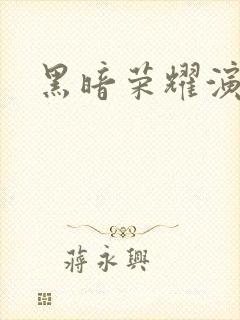 黑暗荣耀演
蒋永興